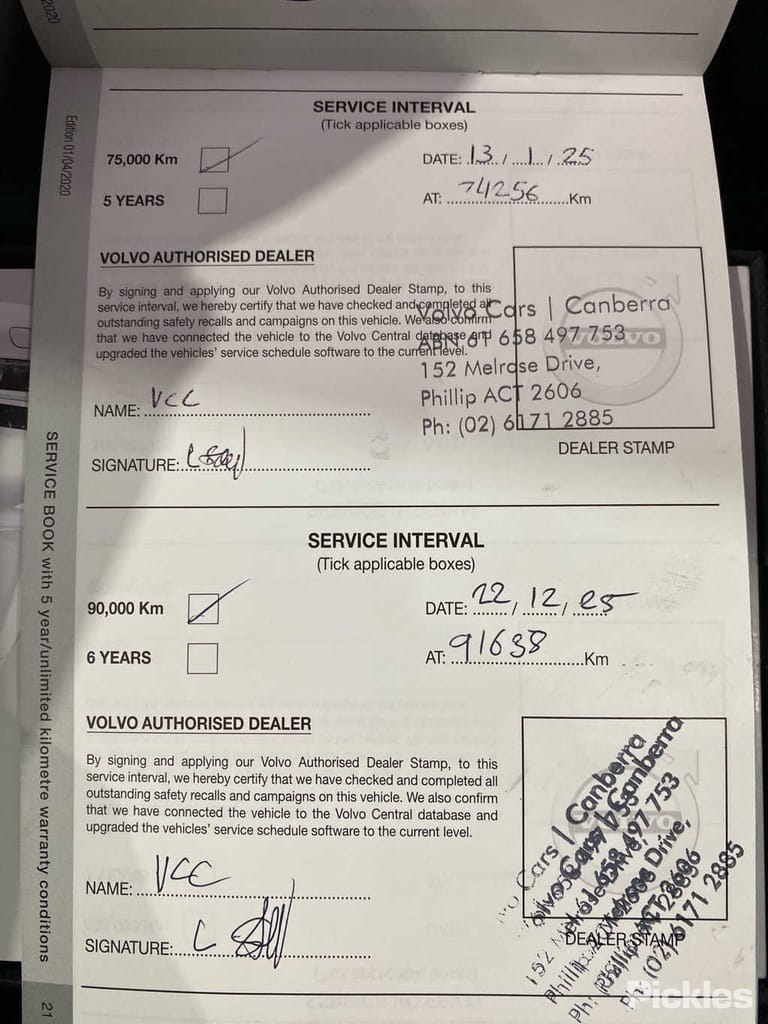 2020
SERVICE INTERVAL
(Tick applicable boxes)
75,000 Km
DATE: 13 / 1 / 25
5 YEARS
AT: 74256 Km
VOLVO AUTHORISED DEALER
By signing and applying our Volvo Authorised Dealer Stamp, to this
service interval, we hereby certify that we have checked and completed all
outstanding safety recalls and campaigns on this vehicle. We also confirm
that we have connected the vehicle to the Volvo Central database and
upgraded the vehicles' service schedule software to the current level.
Volvo Cars | Canberra
ABN 61 658 497 753
152 Melrose Drive,
Phillip ACT 2606
Ph: (02) 6171 2885
VOLVO
NAME: VCC
SIGNATURE:
DEALER STAMP
SERVICE INTERVAL
(Tick applicable boxes)
90,000 Km
DATE: 22 / 12 / 25
6 YEARS
AT: 91638 Km
VOLVO AUTHORISED DEALER
By signing and applying our Volvo Authorised Dealer Stamp, to this
service interval, we hereby certify that we have checked and completed all
outstanding safety recalls and campaigns on this vehicle. We also confirm
that we have connected the vehicle to the Volvo Central database and
upgraded the vehicles' service schedule software to the current level.
Cars | Canberra
Volvo Cars | Canberra
658 497 753
Melrose Drive,
ACT 2606
Ph: (02) 6171 2885
NAME: VCC
SIGNATURE:
DEALER STAMP
Edition 01/04/2020
SERVICE BOOK with 5 year/unlimited kilometre warranty conditions
21
Pickles